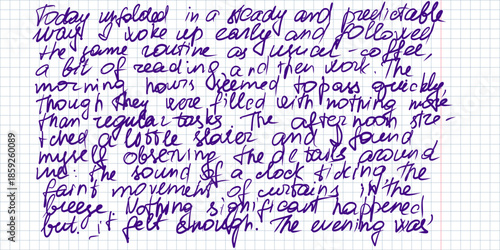 Today unfolded in a steady and predictable
way I woke up early and followed
the same routine as usual - coffee,
a bit of reading, and then work. The
morning hours seemed to pass quickly,
though they were filled with nothing more
than regular tasks. The afternoon stre-
tched a little slower and I found
myself observing the details around
me: the sound of a clock ticking, the
faint movement of curtains in the
breeze. Nothing significant happened
but it felt enough. The evening was
Adobe Stock | #1859260089